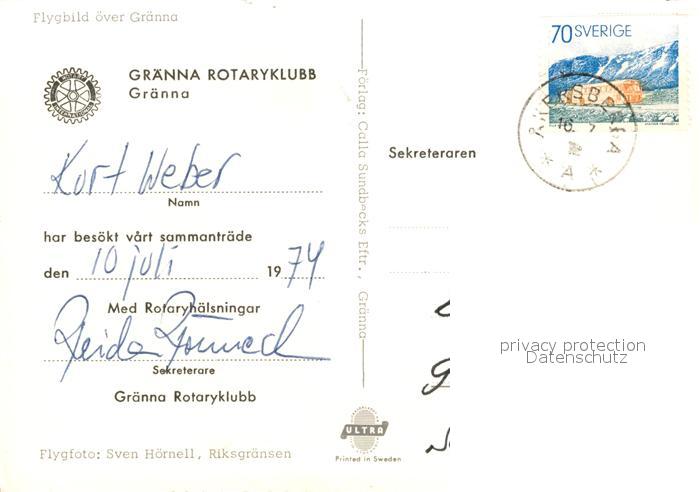 Flygbild över Gränna
GRÄNNA ROTARYKLUBB
Gränna
Kurt Weber
Namn
har besökt vårt sammanträde
den 10 juli 1974
Med Rotaryhälsningar
Sekreterare
Gränna Rotaryklubb
ULTRA
Printed in Sweden
Flygfoto: Sven Hörnell, Riksgränsen
Förlag: Calla Sundbecks Eftr., Gränna
70 SVERIGE
16 7
* A *
Sekreteraren
privacy protection
Datenschutz